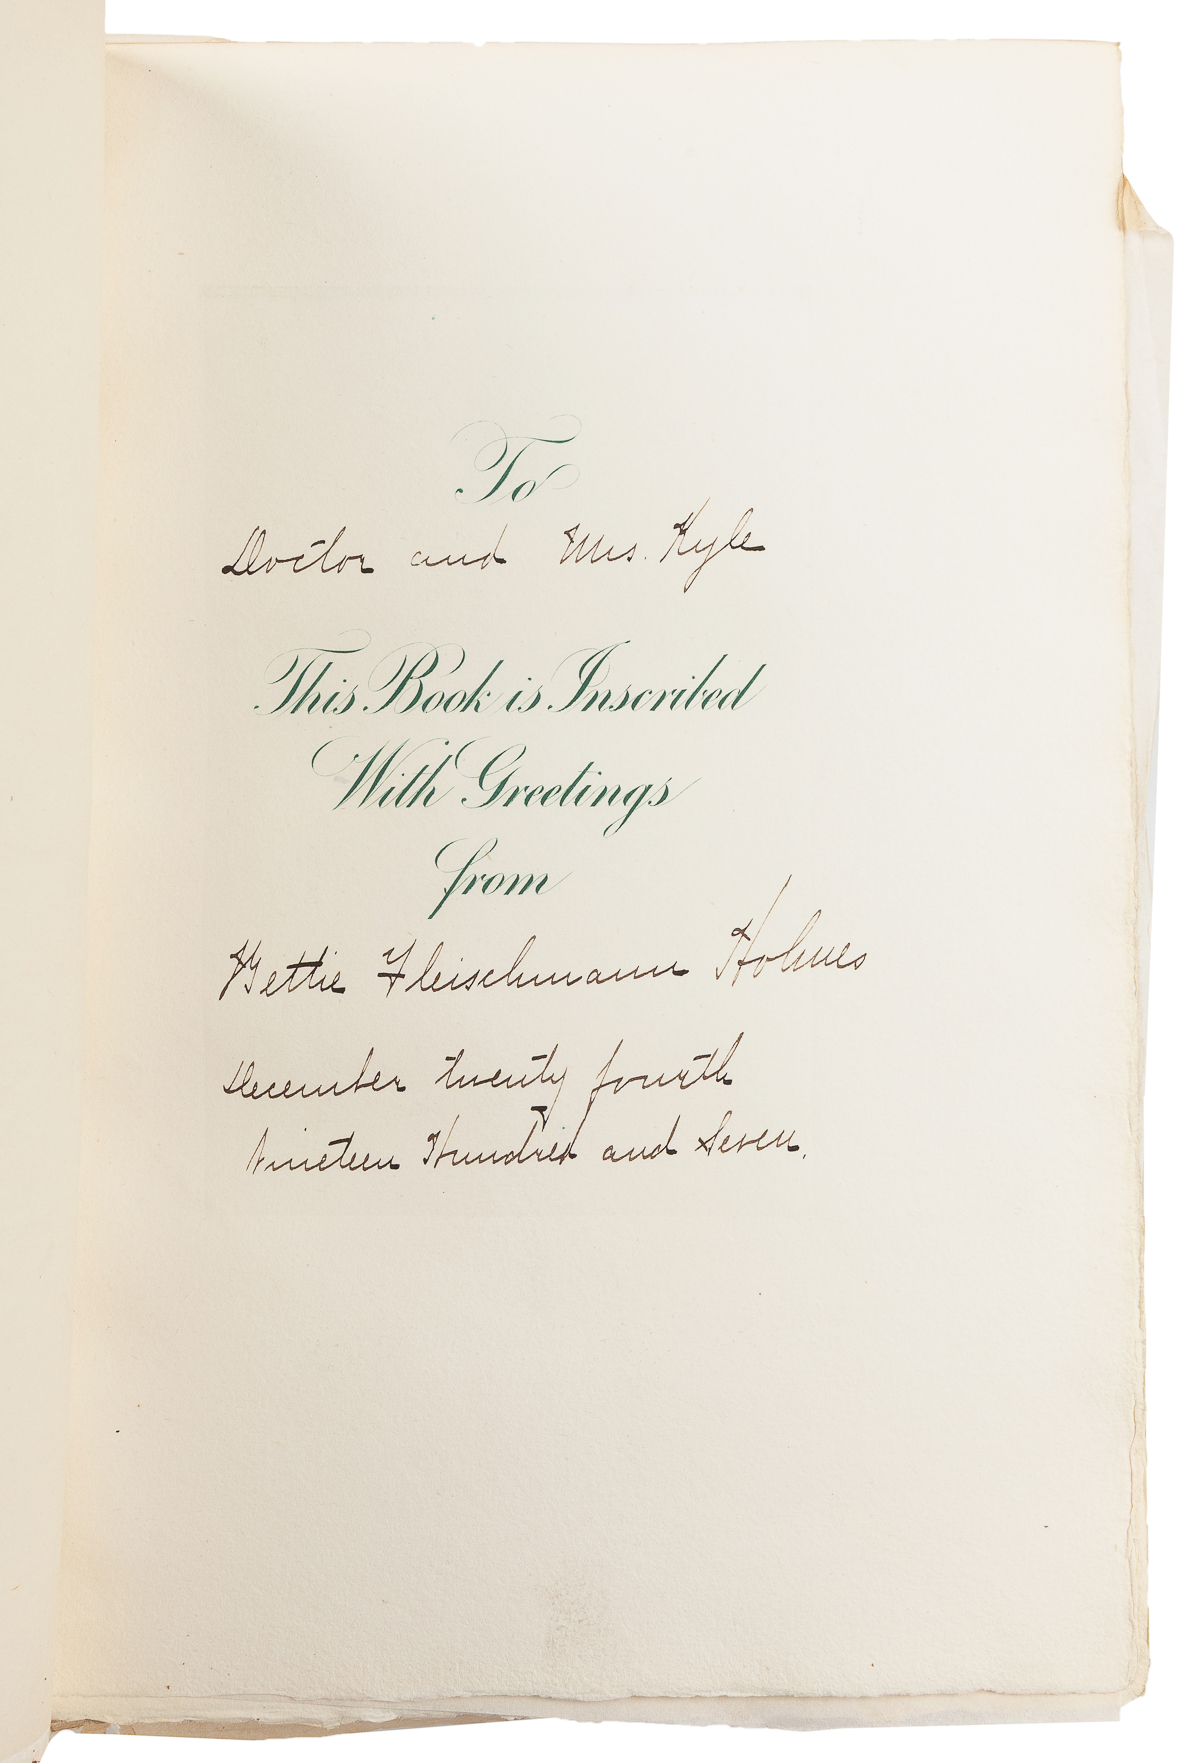 To
Doctor and Mrs. Kyle
This Book is Inscribed
With Greetings
from
Bettie Fleischmann Holmes
December twenty fourth
Nineteen Hundred and Seven.